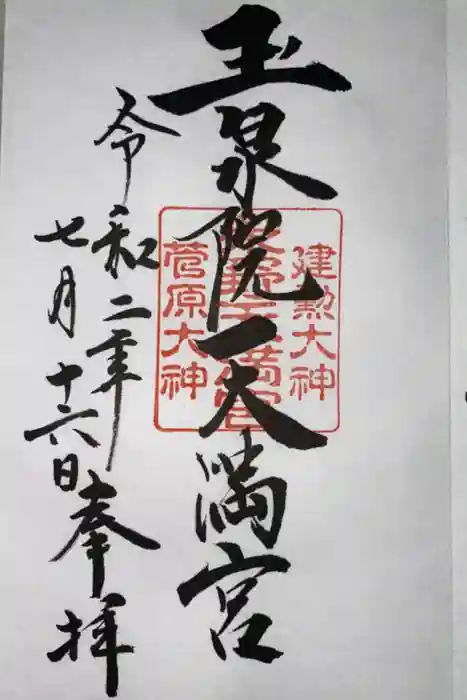 玉泉院天満宮
建勲大神
菅原大神
令和二年
七月十六日
奉拝